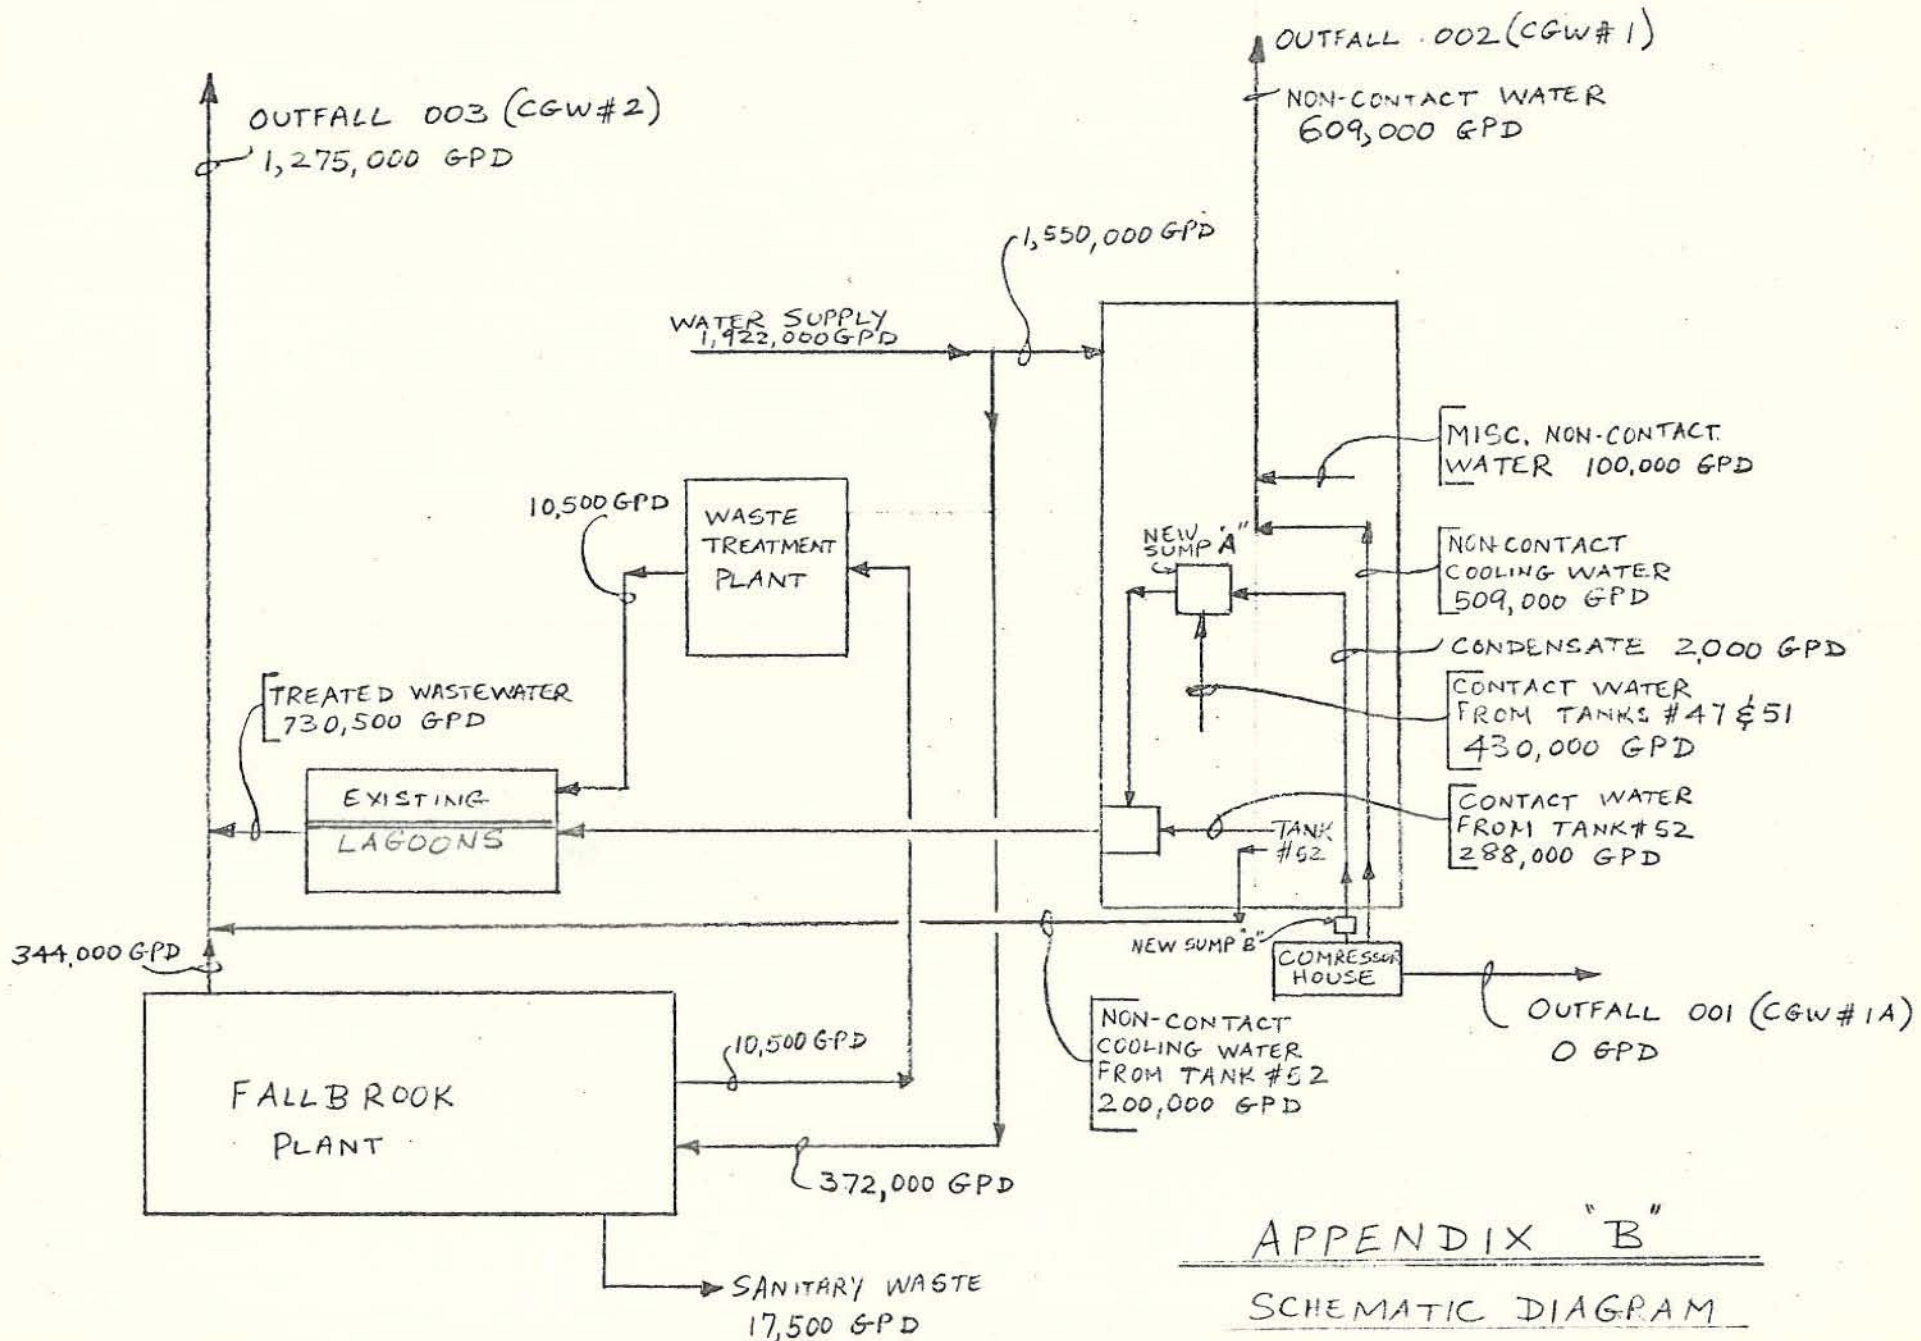 OUTFALL 002 (CGW#1)
NON-CONTACT WATER
609,000 GPD
OUTFALL 003 (CGW#2)
1,275,000 GPD
1,550,000 GPD
WATER SUPPLY
1,922,000 GPD
MISC. NON-CONTACT
WATER 100,000 GPD
10,500 GPD
WASTE
TREATMENT
PLANT
NEW
SUMP "A"
NON-CONTACT
COOLING WATER
509,000 GPD
CONDENSATE 2,000 GPD
TREATED WASTEWATER
730,500 GPD
CONTACT WATER
FROM TANKS #47 & 51
430,000 GPD
EXISTING
LAGOONS
CONTACT WATER
FROM TANK #52
288,000 GPD
TANK
#52
344,000 GPD
NEW SUMP "B"
COMRESSOR
HOUSE
OUTFALL 001 (CGW#1A)
0 GPD
NON-CONTACT
COOLING WATER
FROM TANK #52
200,000 GPD
10,500 GPD
FALLBROOK
PLANT
372,000 GPD
SANITARY WASTE
17,500 GPD
APPENDIX "B"
SCHEMATIC DIAGRAM